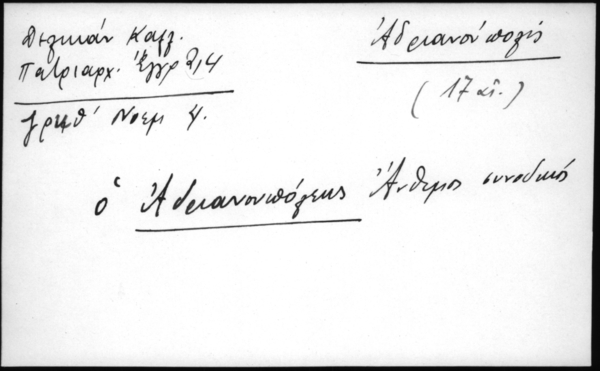 Δελικάν Καλλ.
Πατριαρχ. Έγγρ 2,4
Ἀδριανούπολις
(17 αἰ.)
͵αχμθ' Νοεμ 4.
ὁ Ἀδριανουπόλεως Ἄνθιμος συνοδικός